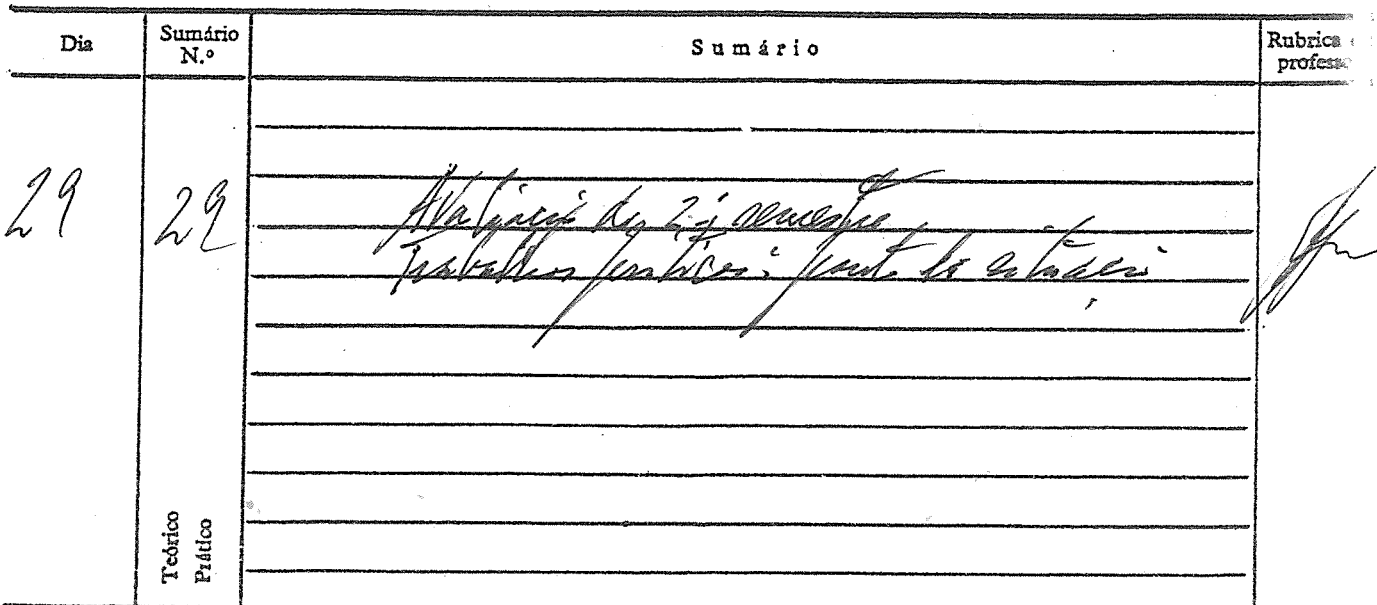 Dia
Sumário N.º
Sumário
Rubrica
29
29
Avaliação do 2.º semestre
Trabalhos práticos: ponto da situação
Teórico
Prático